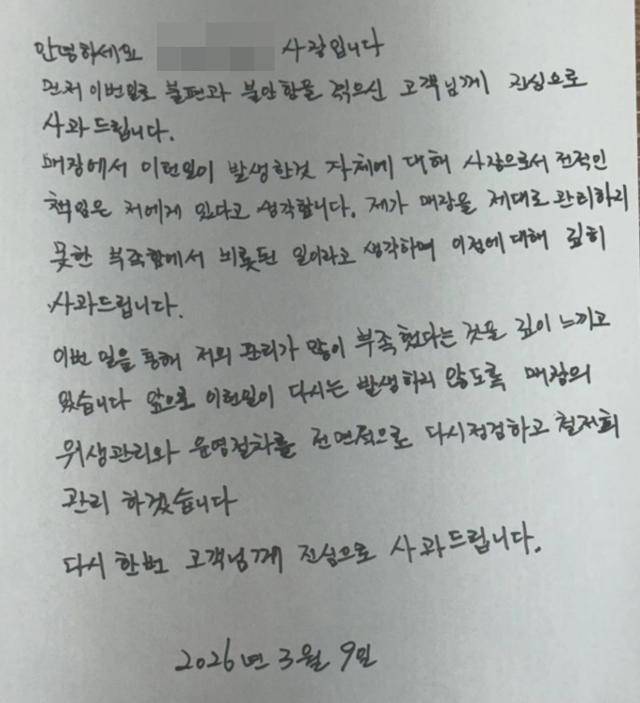 안녕하세요 사장입니다
먼저 이번일로 불편과 불안함을 겪으신 고객님께 진심으로
사과드립니다.
매장에서 이런일이 발생한것 자체에 대해 사장으로서 전적인
책임은 저에게 있다고 생각합니다. 제가 매장을 제대로 관리하지
못한 부족함에서 비롯된 일이라고 생각하며 이점에대해 깊히
사과드립니다.
이번 일을 통해 저의 관리가 많이 부족했다는 것을 깊이 느끼고
있습니다 앞으로 이런일이 다시는 발생하지 않도록 매장의
위생관리와 운영절차를 전면적으로 다시점검하고 철저히
관리 하겠습니다
다시 한번 고객님께 진심으로 사과드립니다.
2026년 3월 9일